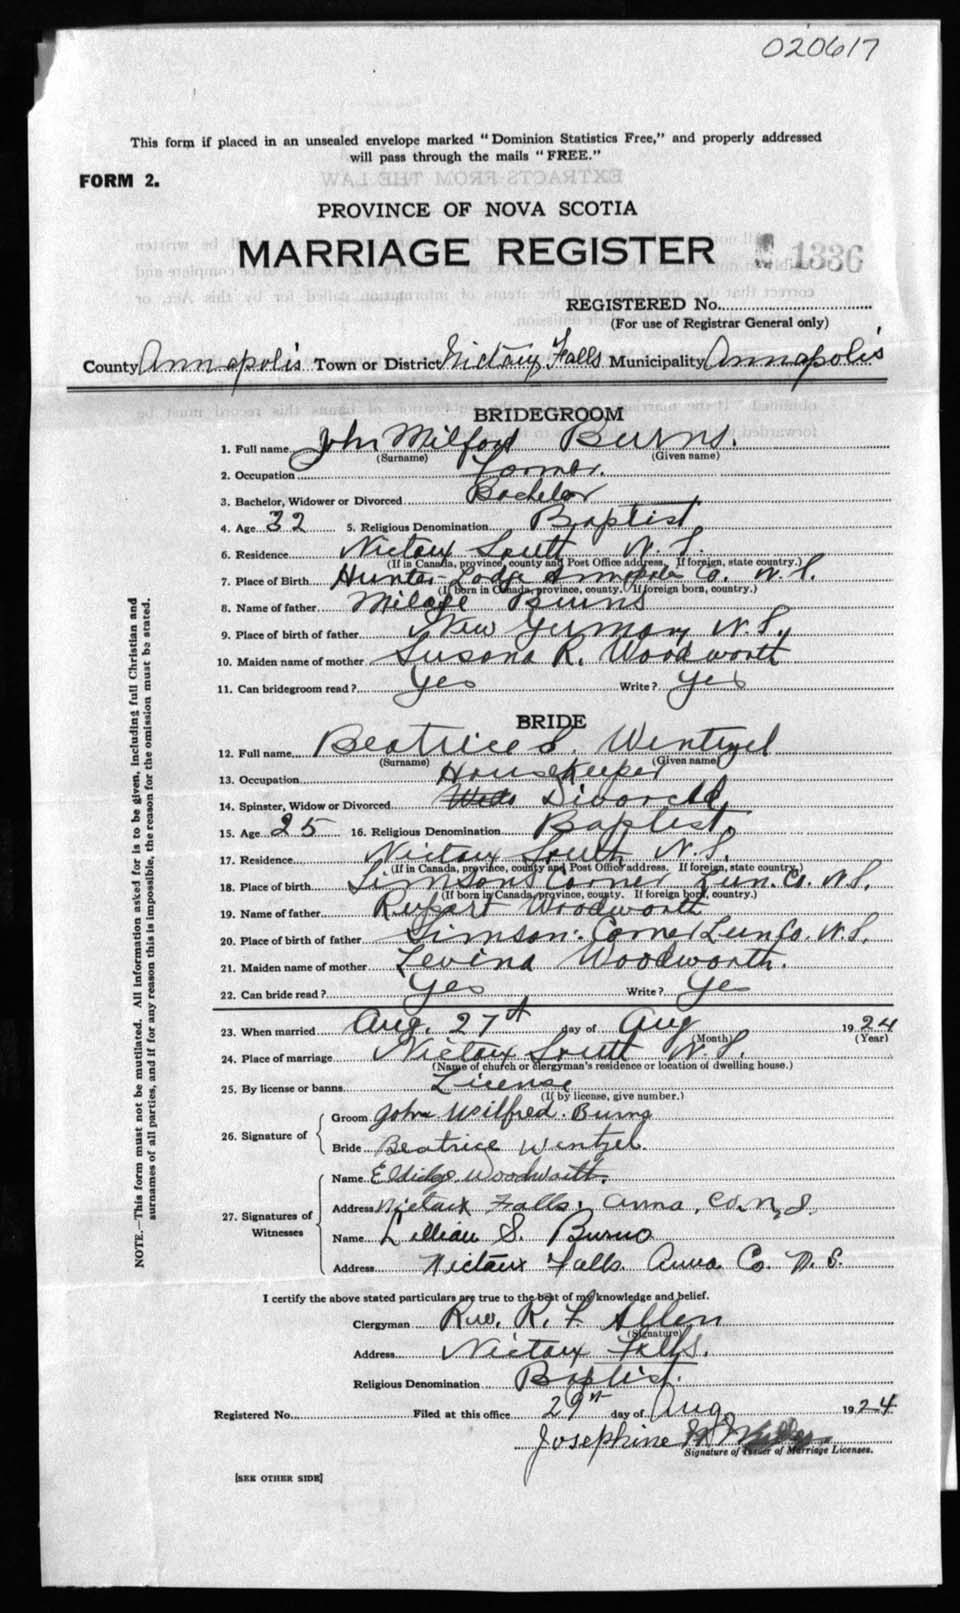 020617
This form if placed in an unsealed envelope marked "Dominion Statistics Free," and properly addressed
will pass through the mails "FREE."
FORM 2.
PROVINCE OF NOVA SCOTIA
MARRIAGE REGISTER 1336
REGISTERED No.
(For use of Registrar General only)
County Annapolis Town or District Nictaux Falls Municipality Annapolis
BRIDEGROOM
1. Full name John Milford Burns.
(Surname) (Given name)
2. Occupation Farmer.
3. Bachelor, Widower or Divorced Bachelor
4. Age 32 5. Religious Denomination Baptist
6. Residence Nictaux South N.S.
(If in Canada, province, county and Post Office address. If foreign, state country.)
7. Place of Birth Hunter-Lodge Annapolis Co. N.S.
(If born in Canada, province, county. If foreign born, country.)
8. Name of father Burns
9. Place of birth of father New Germany N.S.
10. Maiden name of mother Susana R. Woodworth
11. Can bridegroom read? Yes Write? Yes
BRIDE
12. Full name Beatrice S. Wentzel
(Surname) (Given name)
13. Occupation Housekeeper
14. Spinster, Widow or Divorced Divorced,
15. Age 25 16. Religious Denomination Baptist,
17. Residence Nictaux South N.S.
(If in Canada, province, county and Post Office address. If foreign, state country.)
18. Place of birth Simsons Corner Lun. Co. N.S.
(If born in Canada, province, county. If foreign born, country.)
19. Name of father Rupart Woodworth
20. Place of birth of father Simson: Corner Lun Co. N.S.
21. Maiden name of mother Levina Woodworth.
22. Can bride read? Yes Write? Yes
23. When married Aug. 27th day of Aug 1924
(Month) (Year)
24. Place of marriage Nictaux South N.S.
(Name of church or clergyman's residence or location of dwelling house.)
25. By license or banns License
(If by license, give number.)
26. Signature of
Groom John Wilfred. Burns
Bride Beatrice Wentzel.
27. Signatures of Witnesses
Name Woodworth.
Address Nictaux Falls. Anna. Co. N.S.
Name Lillian S. Burns
Address Nictaux Falls Anna Co. N.S.
I certify the above stated particulars are true to the best of my knowledge and belief.
Clergyman Rev. R. F. Allen
(Signature)
Address Nictaux Falls.
Religious Denomination Baptist.
Registered No. Filed at this office 29th day of Aug 1924
Josephine
Signature of Issuer of Marriage Licenses.
[SEE OTHER SIDE]
NOTE.—This form must not be mutilated. All information asked for is to be given, including full Christian and
surnames of all parties, and if for any reason this is impossible, the reason for the omission must be stated.